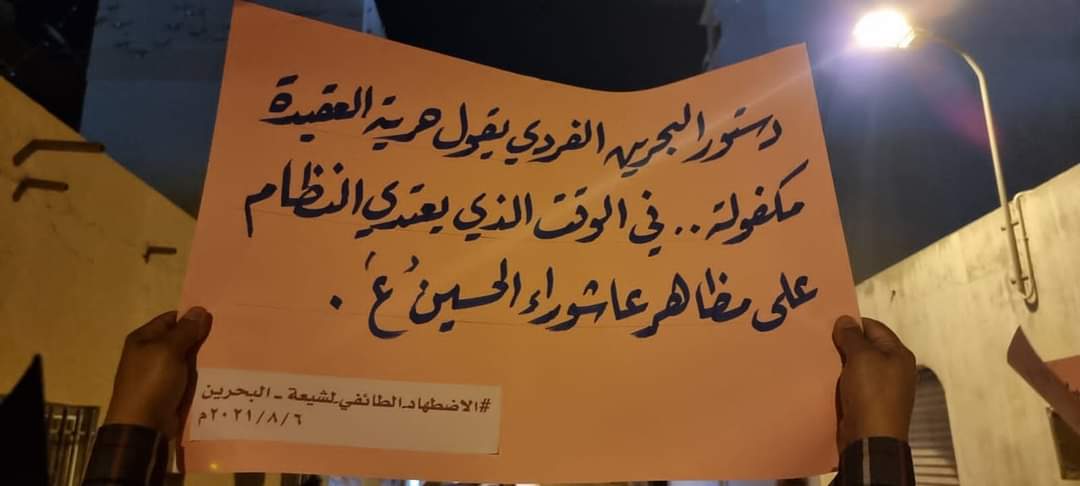 دستور البحرين الفردي يقول حرية العقيدة
مكفولة .. في الوقت الذي يعتدي النظام
على مظاهر عاشوراء الحسين "ع" .
#الاضطهاد_الطائفي_لشيعة_البحرين
٢٠٢١/٨/٦م